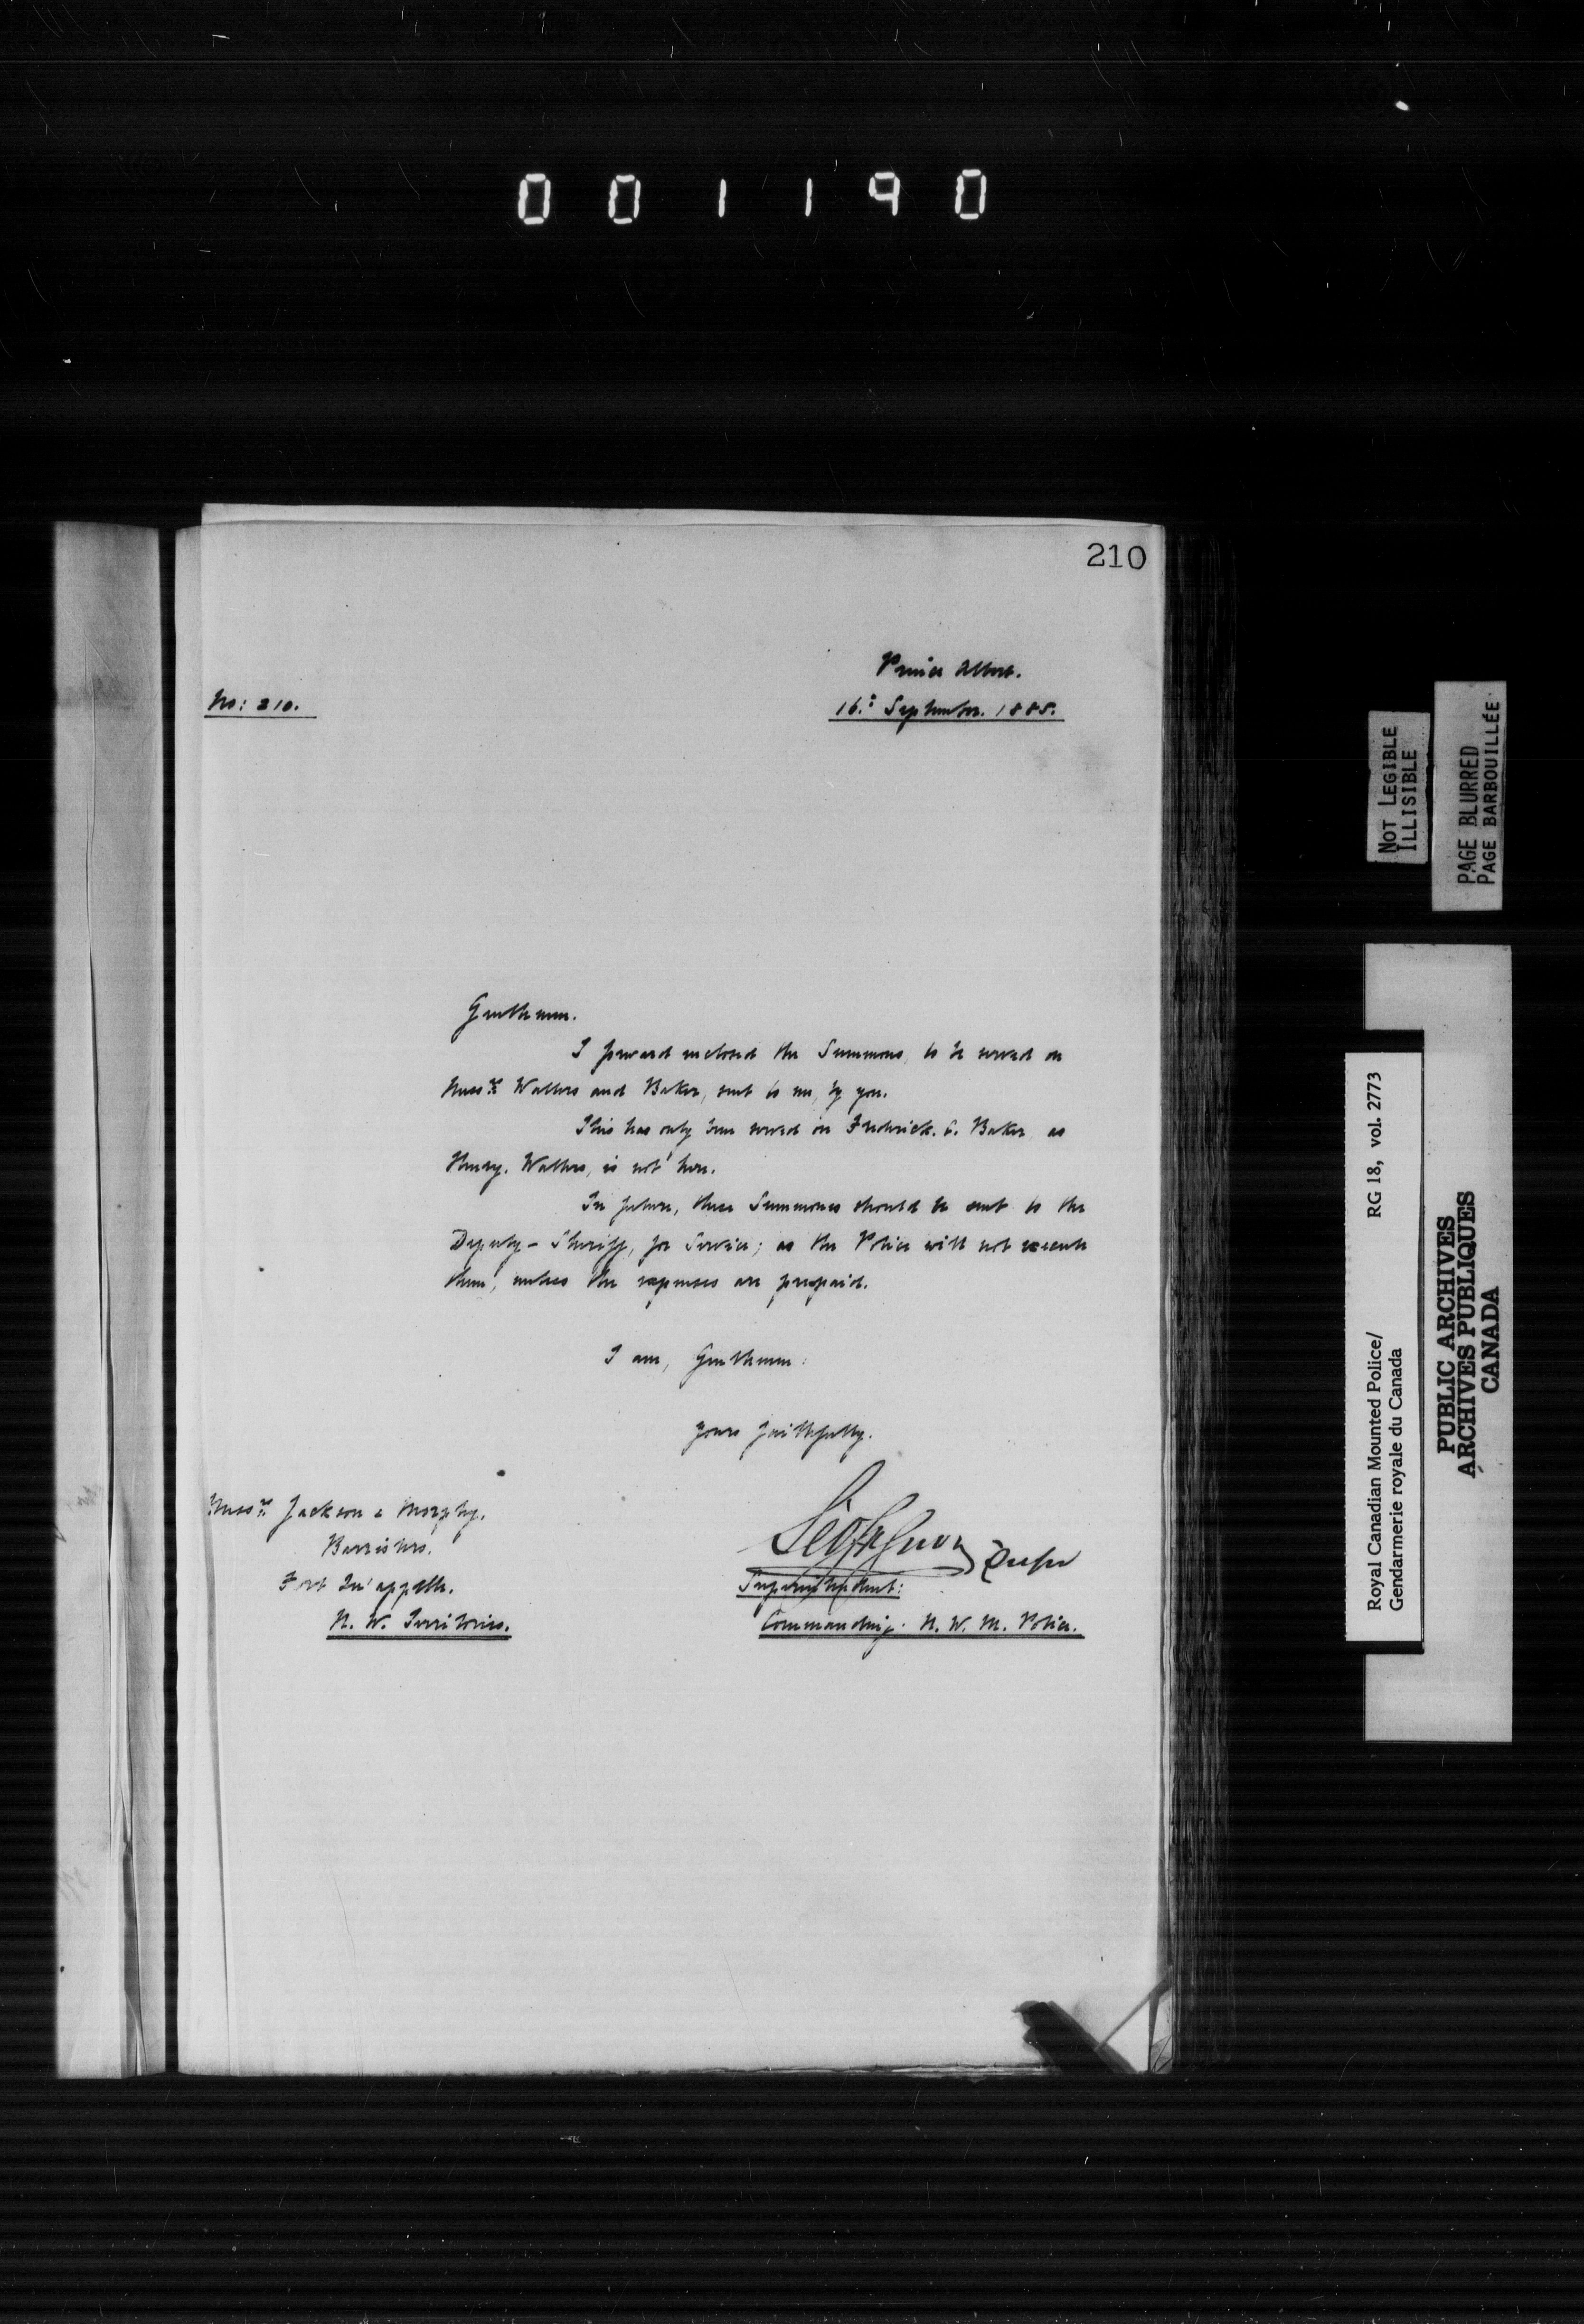 001190
210
Prince Albert.
No: 210.
16.: September. 1885.
Gentlemen.
I forward enclosed the Summons, to be served on
Messrs Walters and Baker, sent to me, by you.
This has only been served on Frederick. G. Baker as
Henry. Walters, is not here.
In future, these Summonses should be sent to the
Deputy-Sheriff, for Service; as the Police will not execute
them, unless the expenses are prepaid.
I am, Gentlemen:
yours faithfully.
Messrs Jackson & Morphy.
Barristers.
Fort Qu'appelle.
N. W. Territories.
Supt
Superintendent:
Commanding. N. W. M. Police.
NOT LEGIBLE
ILLISIBLE
PAGE BLURRED
PAGE BARBOUILLÉE
Royal Canadian Mounted Police/ RG 18, vol. 2773
Gendarmerie royale du Canada
PUBLIC ARCHIVES
ARCHIVES PUBLIQUES
CANADA